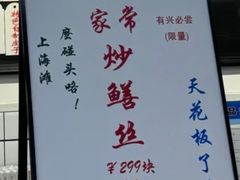 家常炒鳝丝
¥299块
有兴必尝
(限量)
上海滩
麽碰头咯！
天花板了